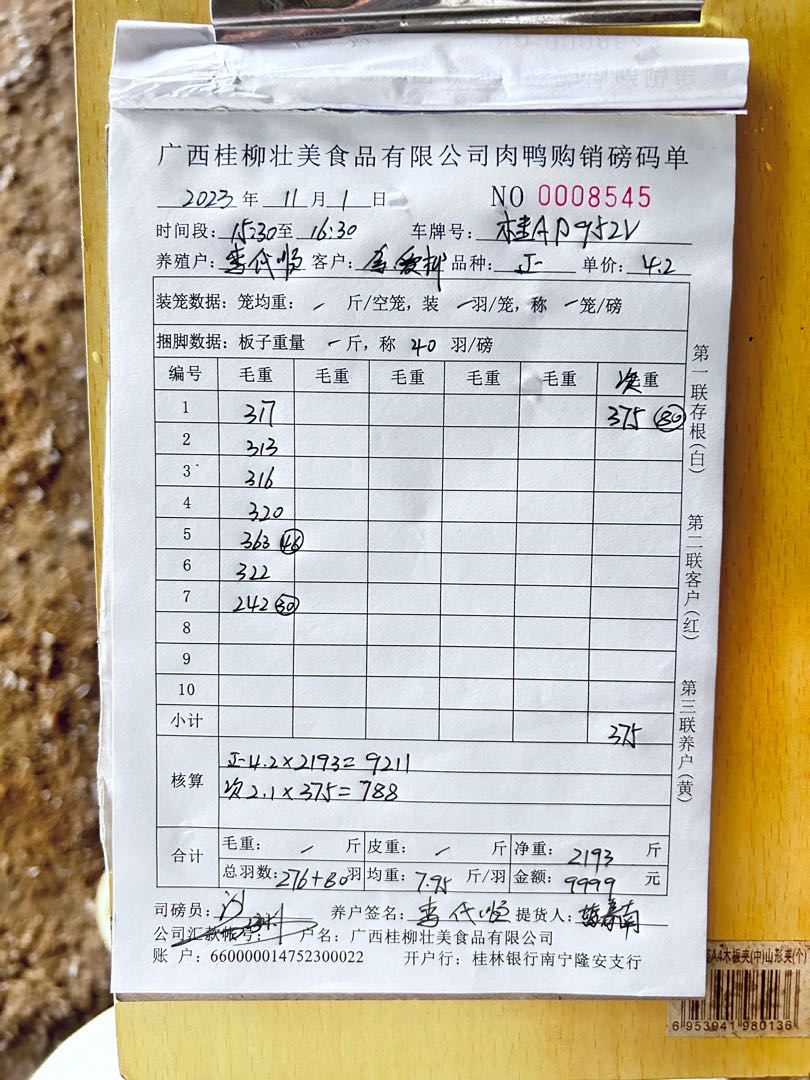 广西桂柳壮美食品有限公司肉鸭购销磅码单
2023 年 11 月 1 日 NO 0008545
时间段: 15:30 至 16:30 车牌号: 桂AD952V
养殖户: 李代顺 客户: 品种: J- 单价: 4.2
装笼数据: 笼均重: - 斤/空笼, 装 - 羽/笼, 称 - 笼/磅
捆脚数据: 板子重量 - 斤, 称 40 羽/磅
编号 毛重 毛重 毛重 毛重 毛重 次重
1 317 375 80
2 313
3 316
4 320
5 363 46
6 322
7 242 30
8
9
10
小计 375
核算 J-4.2×2193=9211
次2.1×375=788
合计 毛重: - 斤 皮重: - 斤 净重: 2193 斤
总羽数: 276+80 羽 均重: 7.95 斤/羽 金额: 9999 元
司磅员: 养户签名: 李代顺 提货人:
公司汇款帐号: 户名: 广西桂柳壮美食品有限公司
账户: 660000014752300022 开户行: 桂林银行南宁隆安支行
第一联存根(白)
第二联客户(红)
第三联养户(黄)
A4木板夹(中)山形夹(个)
6 953941 980136